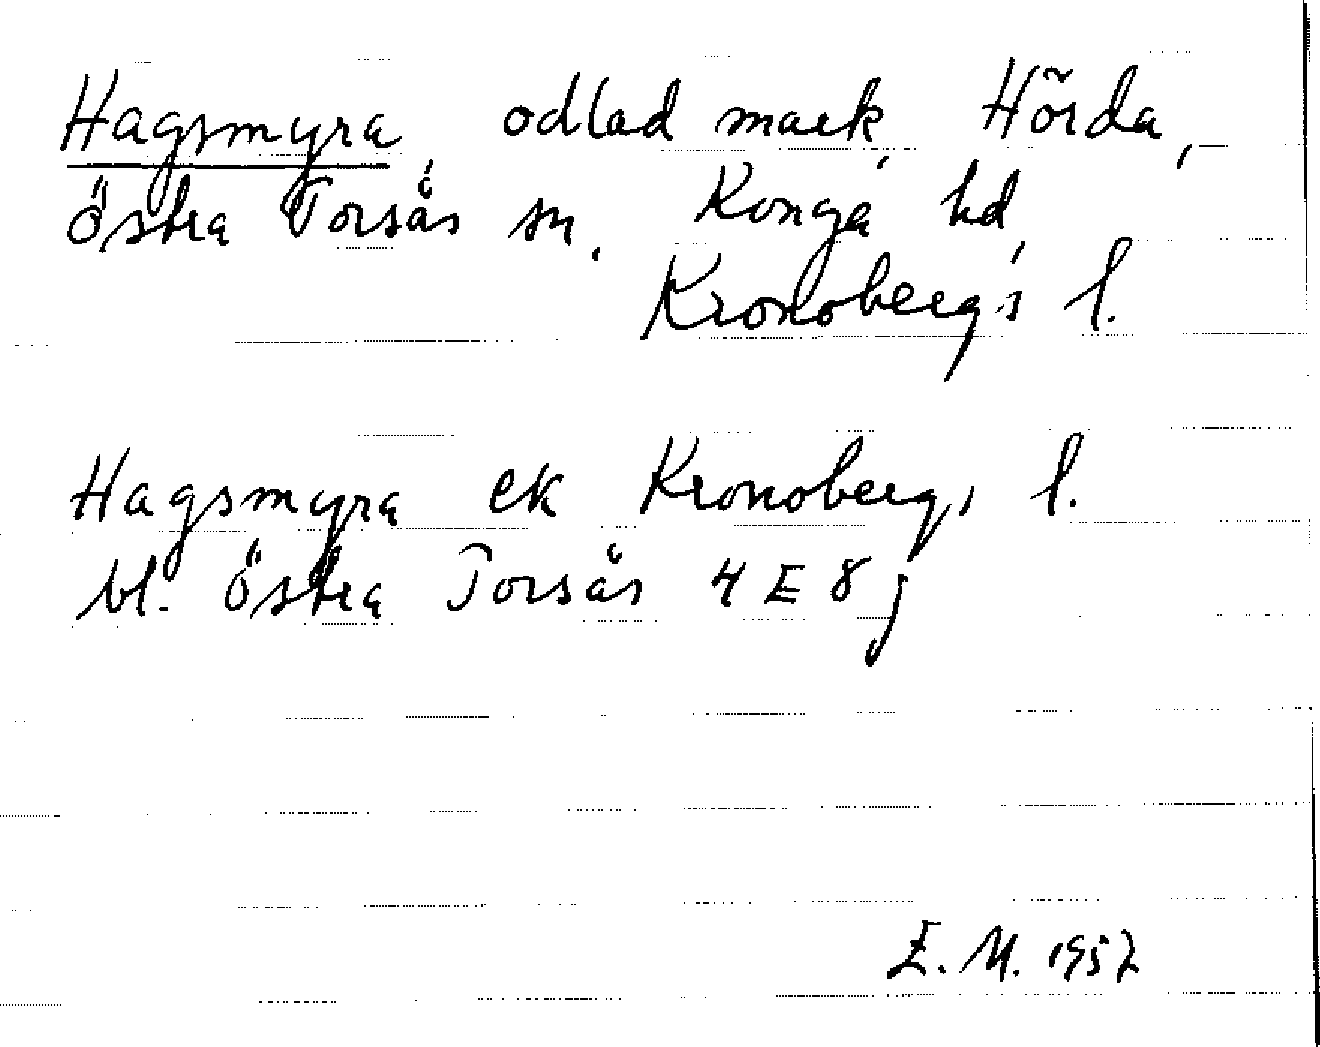 Hagsmyra, odlad mark, Hörda,
Östra Torsås sn, Konga hd,
Kronobergs l.
Hagsmyra ek Kronobergs l.
bl. Östra Torsås 4 E 8 j
E. M. 1952